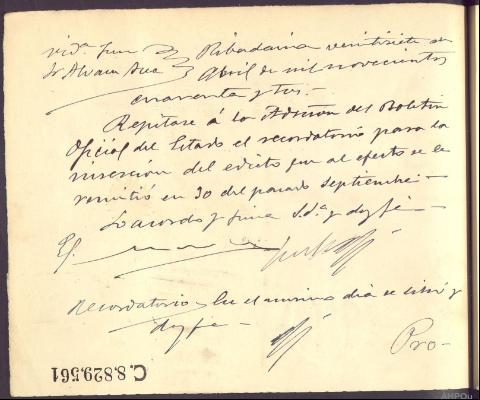 Ribadavia veintisiete de
Abril de mil novecientos
cuarenta y tres.-
Repitase á la Admon del Boletin
Oficial del Estado el recordatorio para la
inserción del edicto que al efecto se le
remitió en 30 del pasado Septiembre.-
Lo acordó y firma S.Sª y doy fé.-
Recordatorio. En el mismo dia se libró y
doy fe.-
Pro-
C.8.829.561
AHPOu